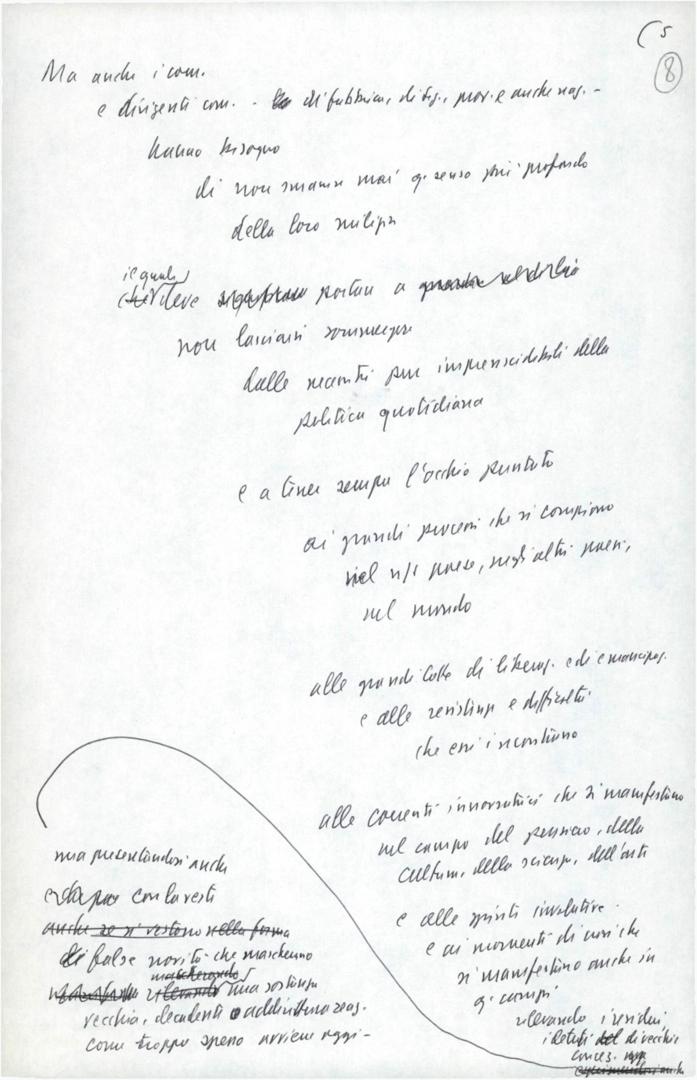 5
8
Ma anche i com.
e dirigenti com. - di fabbrica, di sez., prov. e anche naz. -
hanno bisogno
di non smarrire mai qs senso più profondo
della loro milizia
il quale
che deve portare a
non lasciarsi sommergere
dalle necessità pur imprescindibili della
politica quotidiana
e a tener sempre l'occhio puntato
ai grandi processi che si compiono
nel ns paese, negli altri paesi,
nel mondo
alle grandi lotte di liberaz. e di emancipaz.
e alle resistenze e difficoltà
che essi incontrano
alle correnti innovatrici che si manifestano
nel campo del pensiero, della
cultura, della scienza, dell'arte
e alle spinte involutive
e ai momenti di crisi che
si manifestano anche in
qs campi
rilevando i residui
i detriti del di vecchie
conces.
ma presentandosi anche
con la veste
anche se si vestono nella forma
di false novità che mascherano
mascherando
rilevando una sostanza
vecchia, decadente o addirittura reaz.
come troppo spesso avviene oggi -